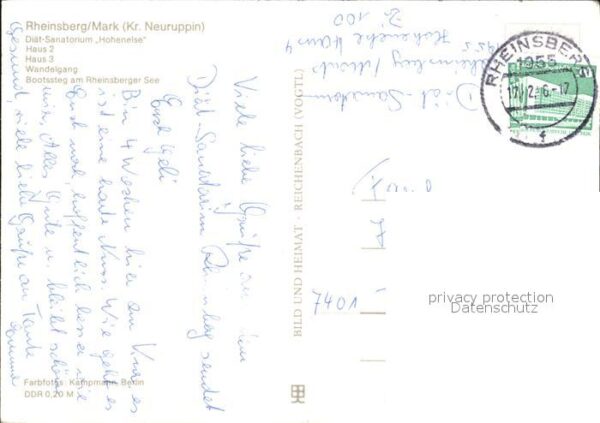 Rheinsberg/Mark (Kr. Neuruppin)
Diät-Sanatorium „Hohenelse"
Haus 2
Haus 3
Wandelgang
Bootssteg am Rheinsberger See
Viele liebe Grüße aus dem
Diät-Sanatorium Rheinsberg sendet
Euch
Bin 4 Wochen hier zur Kur, es
ist eine harte Nuss. Wie geht es
Euch noch, hoffentlich besser wie
mir. Alles Gute u. bleibt schön
Gesund, viele liebe Grüße an Tante
Diät-Sanatorium
Rheinsberg
Hohenelse Haus 4
Zi. 100
RHEINSBERG
1955
-17
f
BILD UND HEIMAT · REICHENBACH (VOGTL)
7401
privacy protection
Datenschutz
Farbfotos: Kampmann, Berlin
DDR 0,20 M